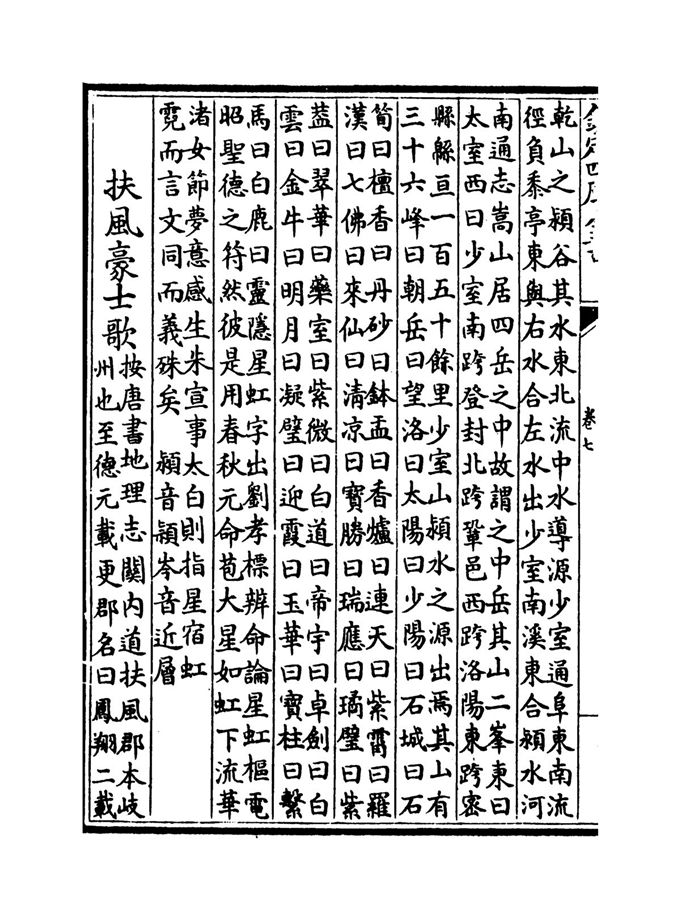 欽定四庫全書
卷七
乾山之潁谷其水東北流中水導源少室通阜東南流
徑負黍亭東與右水合左水出少室南溪東合潁水河
南通志嵩山居四岳之中故謂之中岳其山二峯東曰
太室西曰少室南跨登封北跨鞏邑西跨洛陽東跨密
縣緜亘一百五十餘里少室山潁水之源出焉其山有
三十六峰曰朝岳曰望洛曰太陽曰少陽曰石城曰石
筍曰檀香曰丹砂曰鉢盂曰香爐曰連天曰紫霄曰羅
漢曰七佛曰來仙曰清凉曰寶勝曰瑞應曰璚璧曰紫
葢曰翠華曰藥室曰紫微曰白道曰帝宇曰卓劍曰白
雲曰金牛曰明月曰凝璧曰迎霞曰玉華曰寶柱曰繫
馬曰白鹿曰靈隱星虹字出劉孝標辨命論星虹樞電
昭聖德之符然彼是用春秋元命苞大星如虹下流華
渚女節夢意感生朱宣事太白則指星宿虹
霓而言文同而義殊矣 潁音頴岑音近層
扶風豪士歌
按唐書地理志關内道扶風郡本岐
州也至德元載更郡名曰鳳翔二載